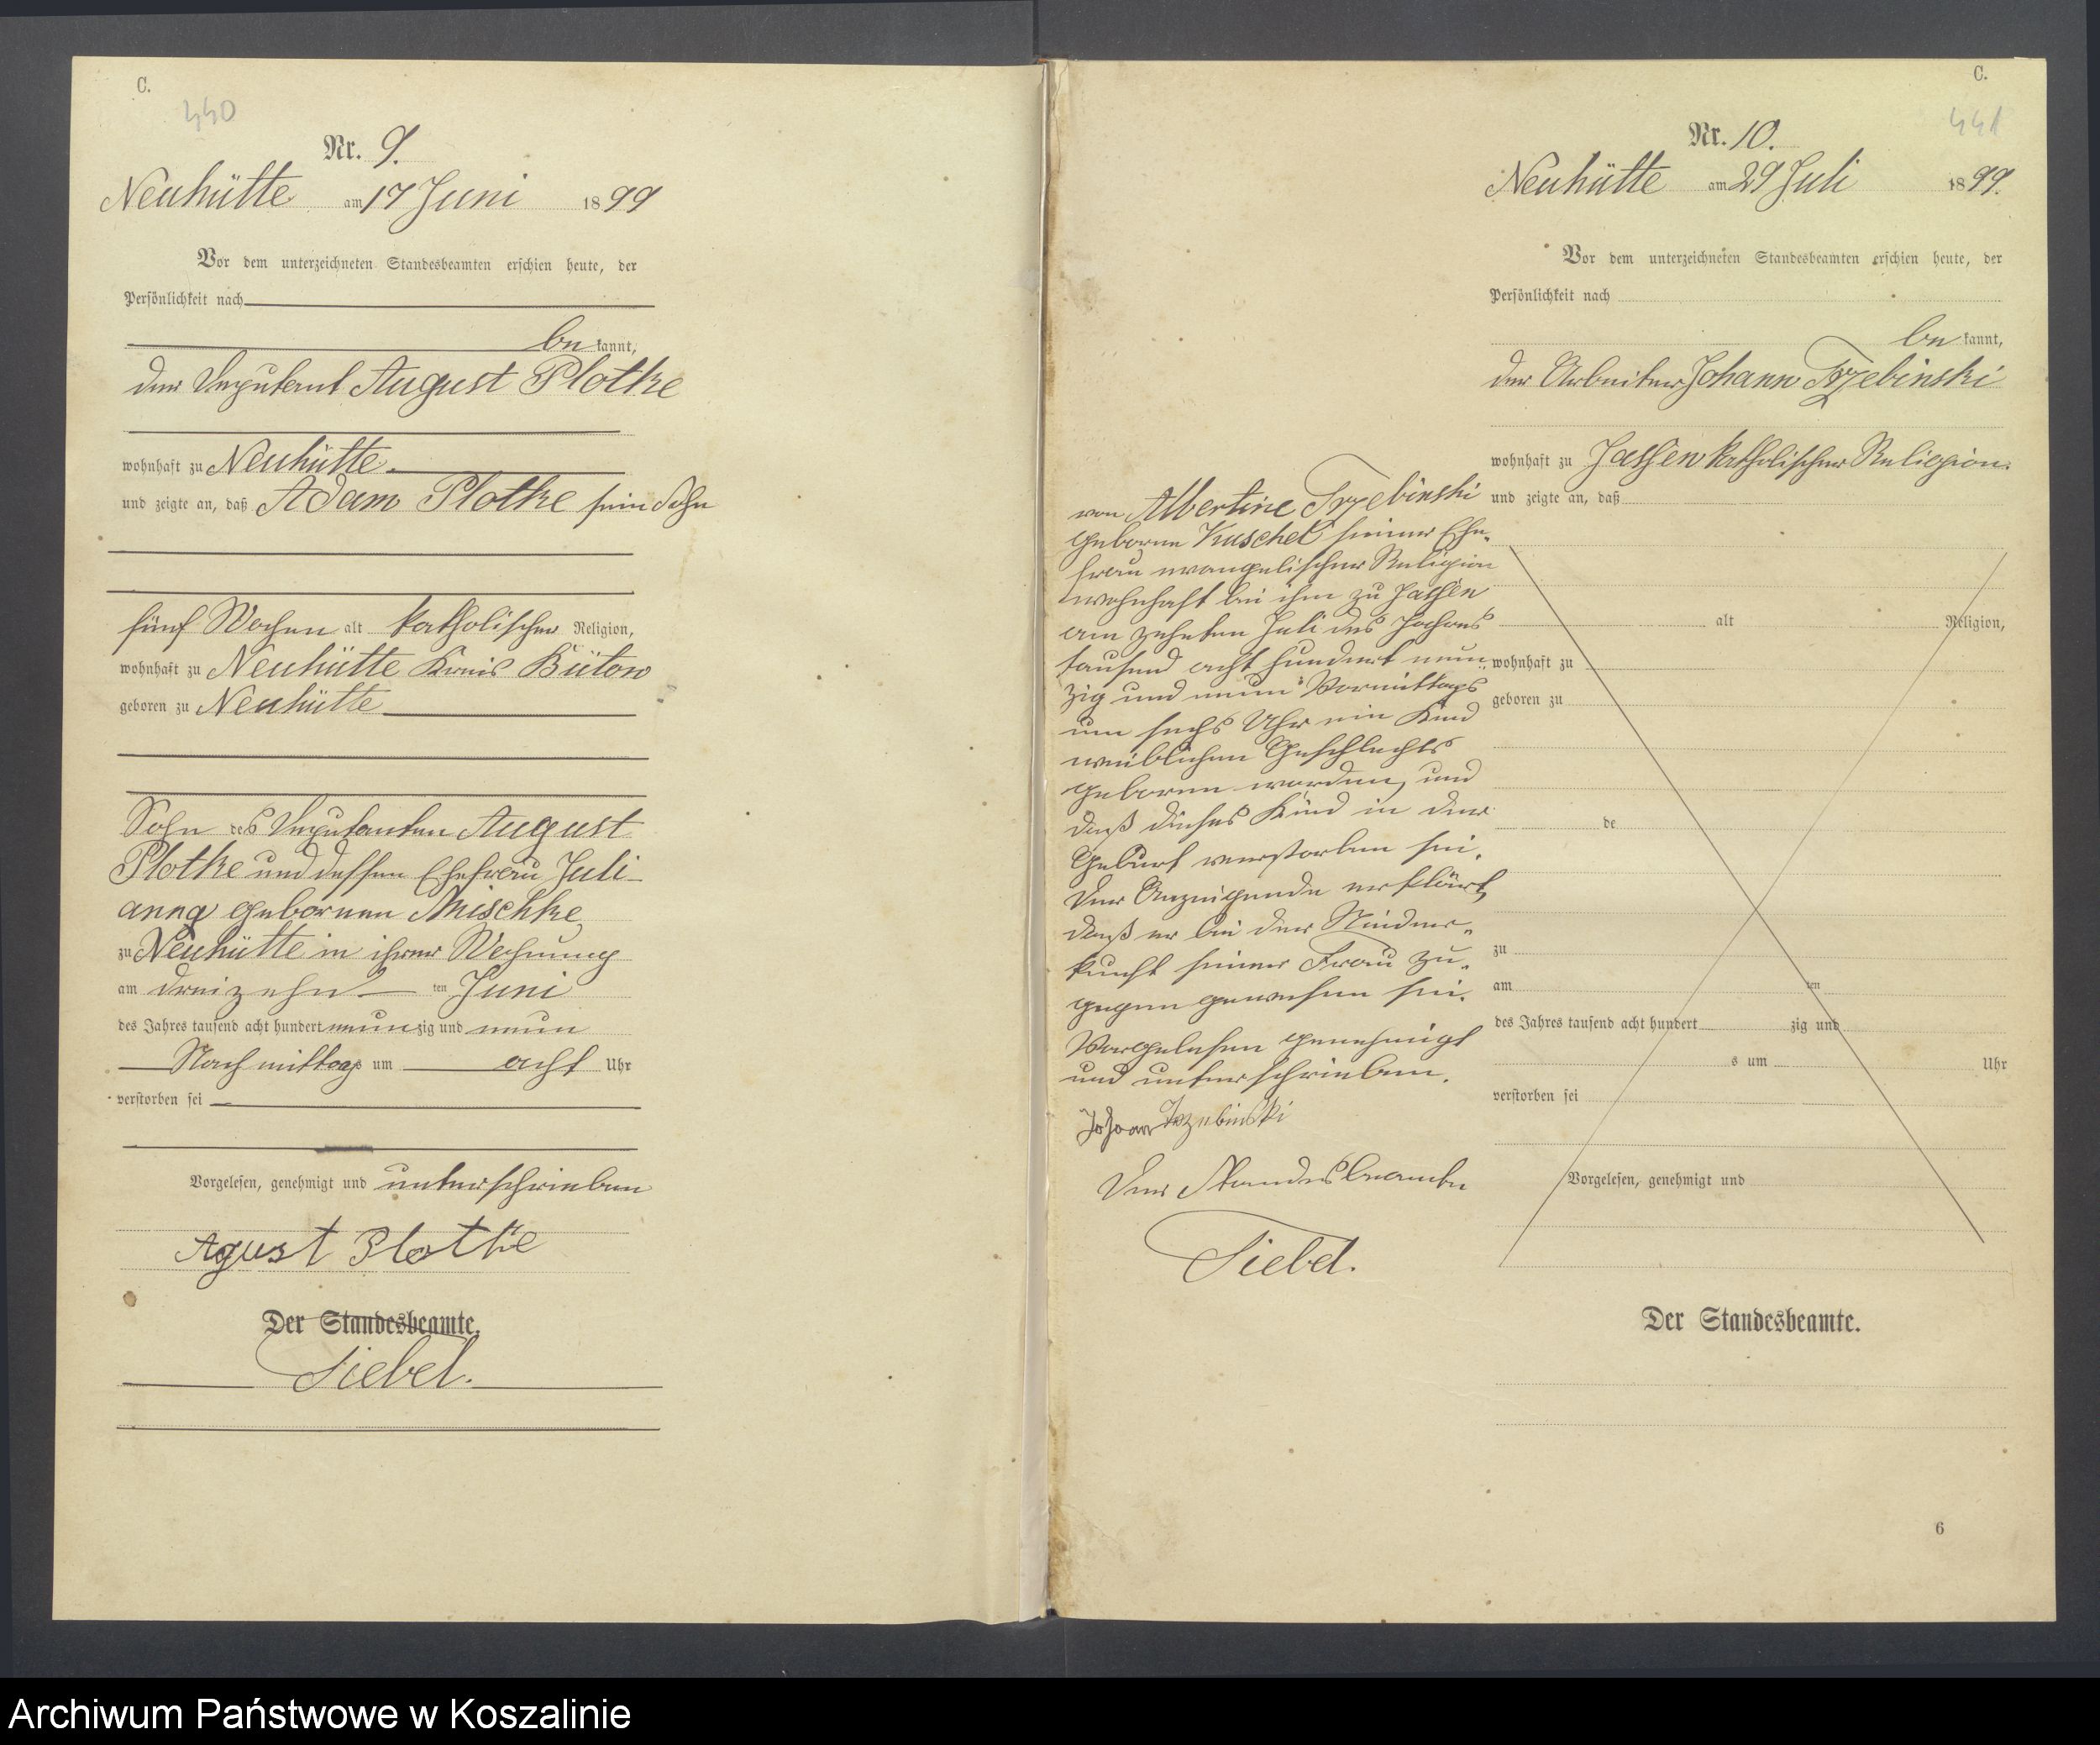 C.
440
Nr. 9.
Neuhütte am 17 Juni 1899
Vor dem unterzeichneten Standesbeamten erschien heute, der
Persönlichkeit nach
bekannt,
der Deputant August Plotke
wohnhaft zu Neuhütte
und zeigte an, daß Adam Plotke sein Sohn
fünf Wochen alt katholischer Religion,
wohnhaft zu Neuhütte Kreis Bütow
geboren zu Neuhütte
Sohn des Deputanten August
Plotke und dessen Ehefrau Juli-
anna geborenen Mischke
zu Neuhütte in ihrer Wohnung
am dreizehn ten Juni
des Jahres tausend acht hundert neunzig und neun
Nachmittags um acht Uhr
verstorben sei
Vorgelesen, genehmigt und unterschrieben
Agust Plotke
Der Standesbeamte.
Siebel.
C.
441
Nr. 10.
Neuhütte am 29 Juli 1899.
Vor dem unterzeichneten Standesbeamten erschien heute, der
Persönlichkeit nach
bekannt,
der Arbeiter Johann Trzebinski
wohnhaft zu Jassen katholischer Religion.
und zeigte an, daß
von Albertine Trzebinski
geborene Kuschel seiner Ehe-
frau evangelischer Religion
wohnhaft bei ihm zu Jassen
am zehnten Juli des Jahres
tausend acht hundert neun-
zig und neun Vormittags
um sechs Uhr ein Kind
weiblichen Geschlechts
geboren worden, und
daß dieses Kind in der
Geburt verstorben sei.
Der Anzeigende erklärt,
daß er bei der Nieder-
kunft seiner Frau zu-
gegen gewesen sei.
Vorgelesen genehmigt
und unterschrieben.
Johann Trzebinski
Der Standesbeamte
Siebel.
alt Religion,
wohnhaft zu
geboren zu
de
zu
am ten
des Jahres tausend acht hundert zig und
s um Uhr
verstorben sei
Vorgelesen, genehmigt und
Der Standesbeamte.
6
Archiwum Państwowe w Koszalinie